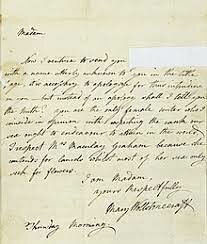 Madam
Now I venture to send you
with a name utterly unknown to you in the title
page, it is necessary to apologize for thus intruding
on you - but instead of an apology shall I tell you
the truth? you are the only female writer who
coincide in opinion with respecting the rank our
sex ought to endeavour to attain in the world.
I respect Mrs Macaulay Graham because she
contends for laurels whilst most of her sex only
seek for flowers.
I am Madam,
yours Respectfully
Mary Wollstonecraft
Thursday Morning.